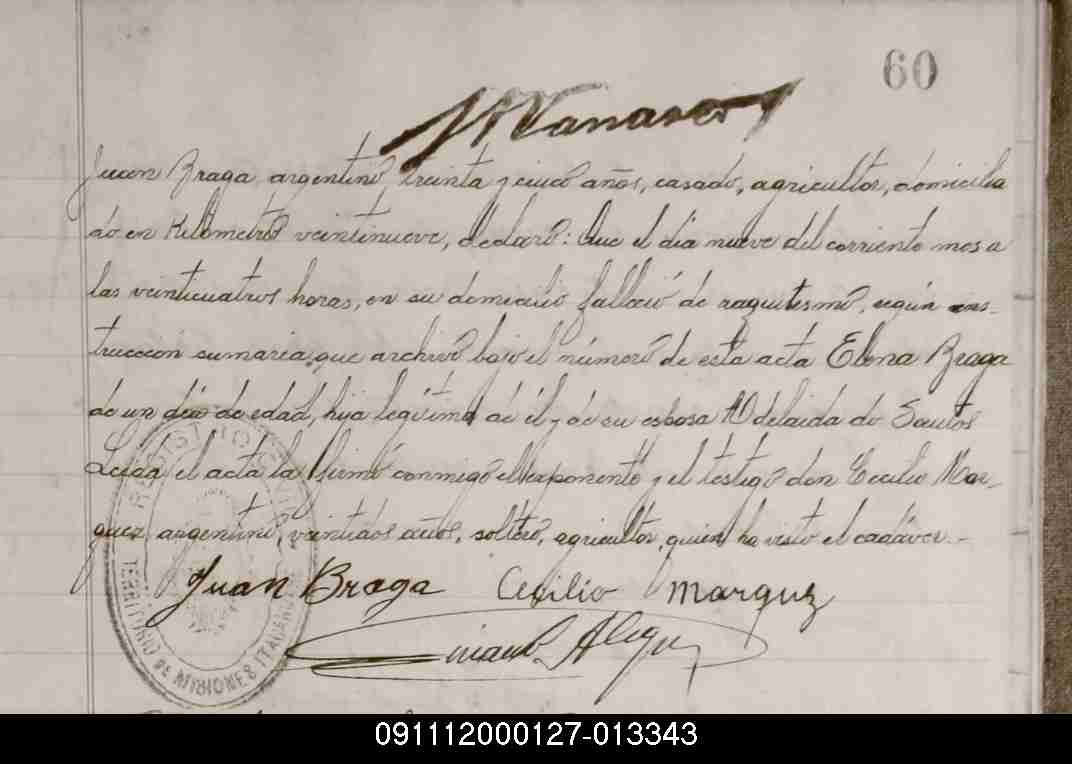 60
Juan Braga, argentino, treinta y cinco años, casado, agricultor, domicilia
do en Kilometro veintinueve, declaró: Que el día nueve del corriente mes a
las veinticuatros horas, en su domicilio falleció de raquitismo, según ins-
trucción sumaria que archivo bajo el número de esta acta Elena Braga
de un dia de edad, hija legítima de él y de su esposa Adelaida do Santos
Leida el acta la firmó conmigo el exponente y el testigo don Cecilio Mar-
quez, argentino, veintidos años, soltero, agricultor, quien ha visto el cadáver.-
Juan Braga Cecilio Marquz
REGISTRO
TERRITORIO DE MISIONES
091112000127-013343